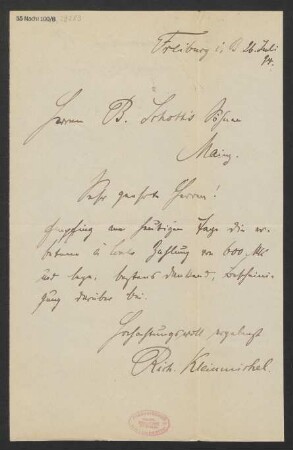 55 Nachl 100/B,
Freiburg i. B. 26. Juli
94.
Herren B. Schott's Söhne
Mainz.
Sehr geehrte Herren!
Empfing am heutigen Tage die er-
betene à conto Zahlung von 600 Mk
und lege, bestens dankend, Bescheini-
gung darüber bei.
Hochachtungsvoll ergebenst
Rich. Kleinmichel.